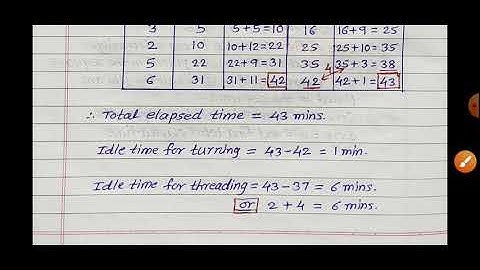 3 5 5+5=10 16 16+9 = 25
2 10 10+12=22 25 25+10 = 35
5 22 22+9=31 35 35+3 = 38
4
6 31 31+11=42 42 42+1 = 43
∴ Total elapsed time = 43 mins.
Idle time for turning = 43-42 = 1 min.
Idle time for threading = 43-37 = 6 mins.
or 2+4 = 6 mins.